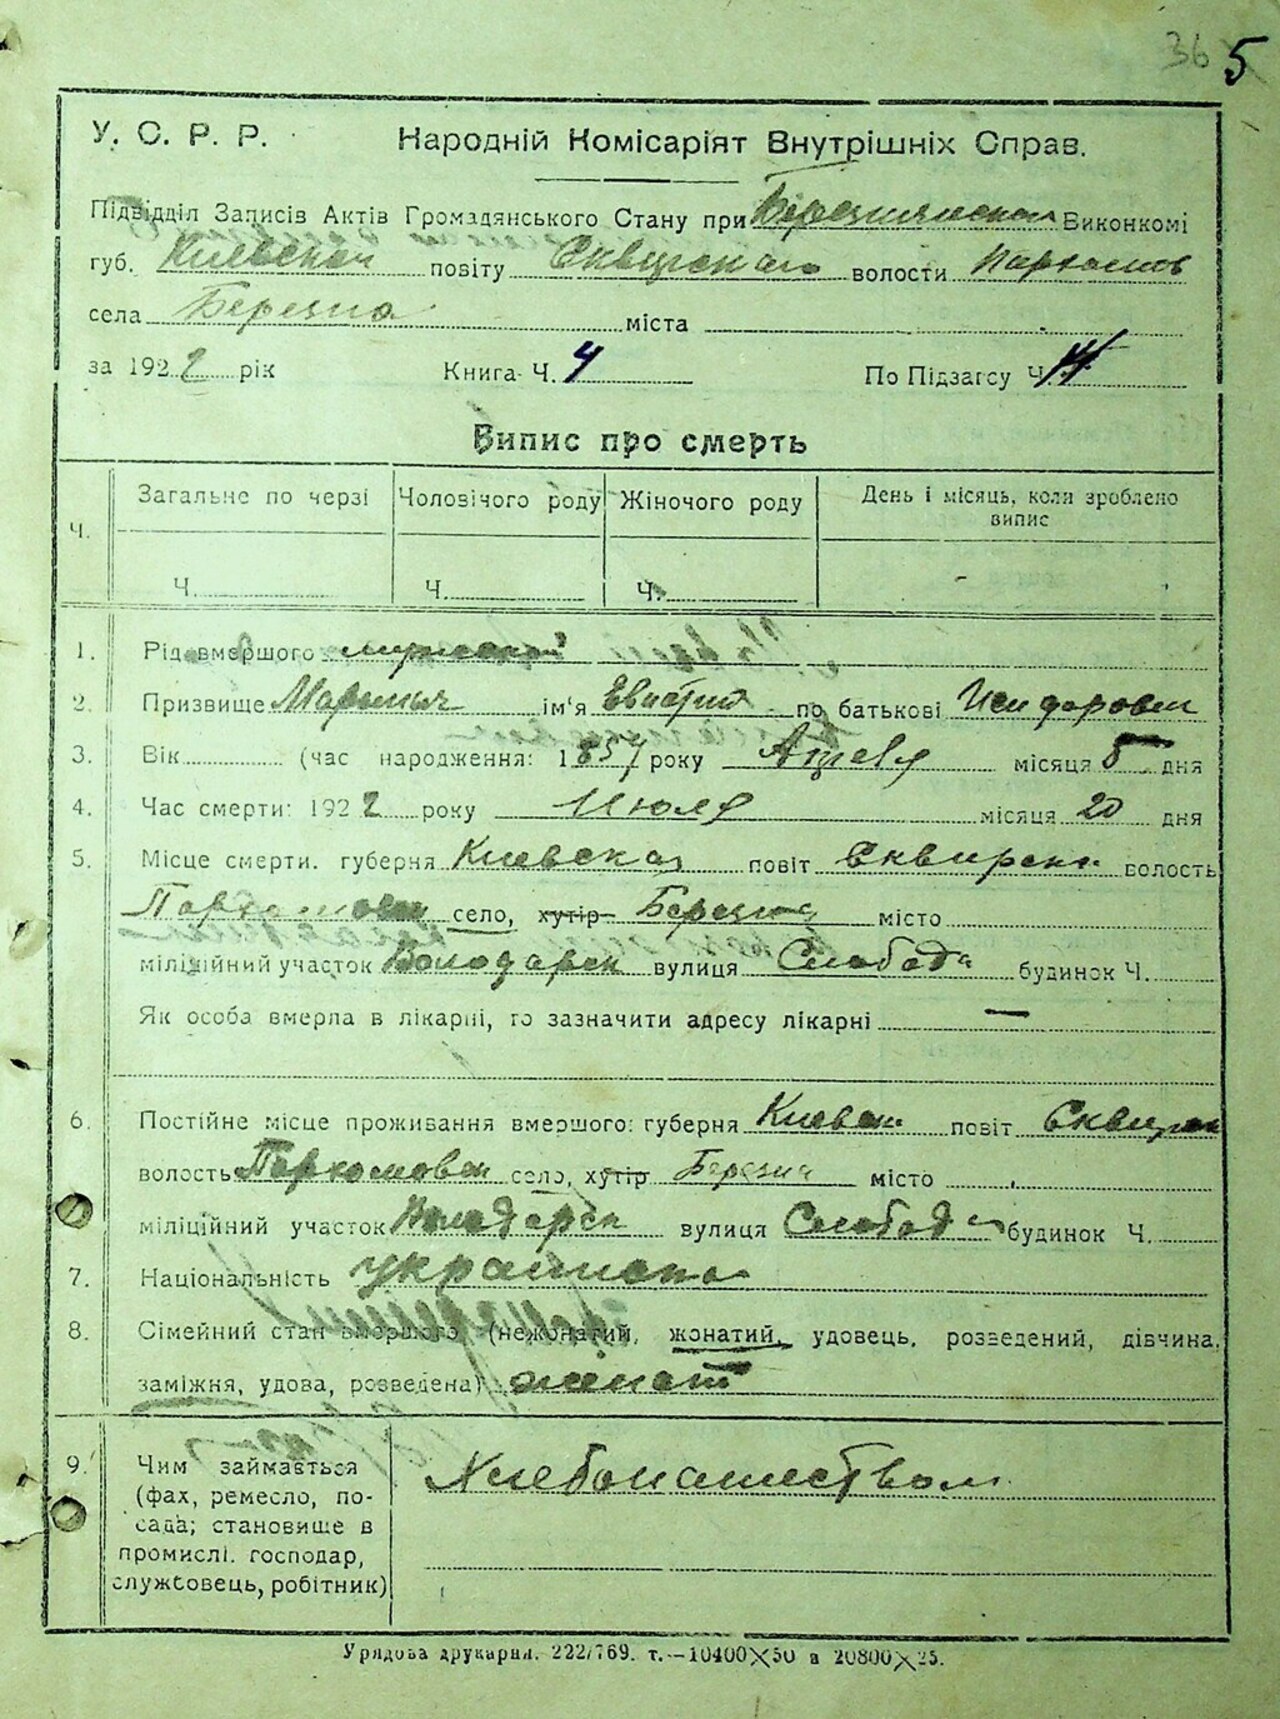 36 5
У. С. Р. Р. Народній Комісаріят Внутрішніх Справ.
Підвідділ Записів Актів Громадянського Стану при Виконкомі
губ. Киевской повіту Сквирского волости
села Березна міста
за 1922 рік Книга Ч. 4 По Підзагсу Ч. 14
Випис про смерть
Ч. Загальне по черзі Чоловічого роду Жіночого роду День і місяць, коли зроблено
випис
Ч. Ч. Ч.
1. Рід вмершого мужской
2. Призвище імʼя по батькові Исидорович
3. Вік (час народження: 1857 року Апреля місяця 5 дня
4. Час смерти: 1922 року Июля місяця 20 дня
5. Місце смерти. губерня Киевская повіт Сквирск волость
село, хутір Березна місто
міліційний участок Володарск вулиця Слобода будинок Ч.
Як особа вмерла в лікарні, то зазначити адресу лікарні —
6. Постійне місце проживання вмершого: губерня Киевск повіт Сквирск
волость село, хутір Березна місто
міліційний участок Володарск вулиця Слобода будинок Ч.
7. Національність
8. Сімейний стан вмершого (нежонатий, жонатий, удовець, розведений, дівчина,
заміжня, удова, розведена) женат
9. Чим займається Хлебопашеством
(фах, ремесло, по-
сада; становище в
промислі. господар,
службовець, робітник)
Урядова друкарня. 222/769. т.—10400×50 а 20800×25.